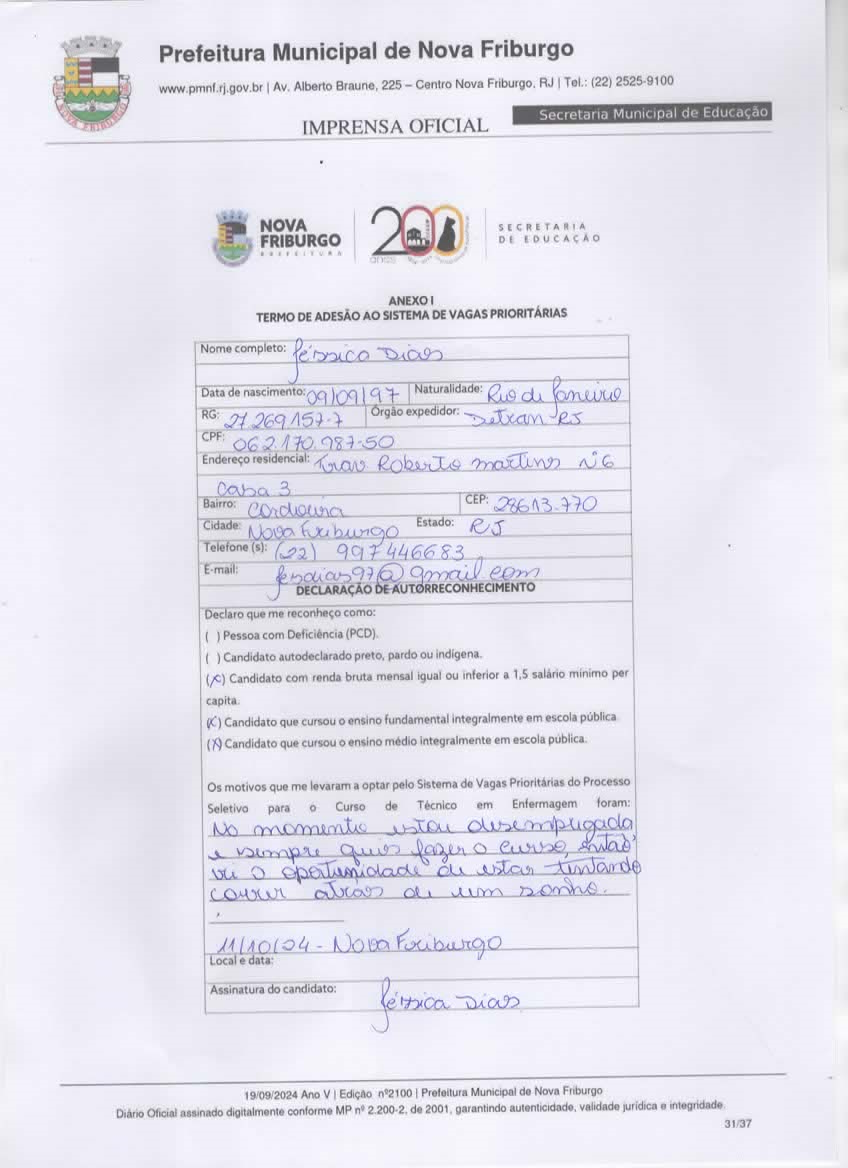 Prefeitura Municipal de Nova Friburgo
www.pmnf.rj.gov.br | Av. Alberto Braune, 225 – Centro Nova Friburgo, RJ | Tel.: (22) 2525-9100
IMPRENSA OFICIAL
Secretaria Municipal de Educação
NOVA FRIBURGO
NOVA
FRIBURGO
PREFEITURA
200
anos
SECRETARIA
DE EDUCAÇÃO
ANEXO I
TERMO DE ADESÃO AO SISTEMA DE VAGAS PRIORITÁRIAS
Nome completo: Jéssica Dias
Data de nascimento: 09/09/97 Naturalidade: Rio de Janeiro
RG: 27.269157-7 Órgão expedidor: Detran-RJ
CPF: 062.170.987-50
Endereço residencial: Trav Roberto martins nº6
Casa 3
Bairro: Cordoeira CEP: 28613-770
Cidade: Nova Friburgo Estado: RJ
Telefone (s): (22) 997446683
E-mail: jesdias97@gmail.com
DECLARAÇÃO DE AUTORRECONHECIMENTO
Declaro que me reconheço como:
( ) Pessoa com Deficiência (PCD).
( ) Candidato autodeclarado preto, pardo ou indígena.
(X) Candidato com renda bruta mensal igual ou inferior a 1,5 salário mínimo per
capita.
(X) Candidato que cursou o ensino fundamental integralmente em escola pública
(X) Candidato que cursou o ensino médio integralmente em escola pública.
Os motivos que me levaram a optar pelo Sistema de Vagas Prioritárias do Processo
Seletivo para o Curso de Técnico em Enfermagem foram:
No momento estou desempregada
e sempre quis fazer o curso, então
vi o oportunidade de estar tentando
correr atras de um sonho.
11/10/24 - Nova Friburgo
Local e data:
Assinatura do candidato: Jéssica Dias
19/09/2024 Ano V | Edição nº2100 | Prefeitura Municipal de Nova Friburgo
Diário Oficial assinado digitalmente conforme MP nº 2.200-2, de 2001, garantindo autenticidade, validade jurídica e integridade.
31/37